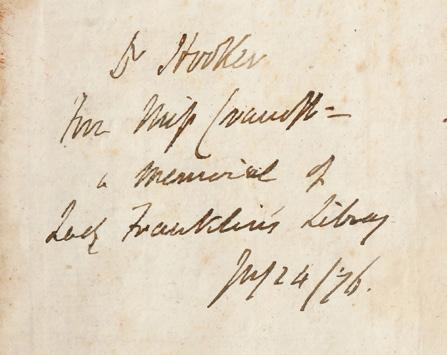 Dr Hooker
from Miss Cracroft —
a memorial of
Lady Franklin's Library
July 24/76.